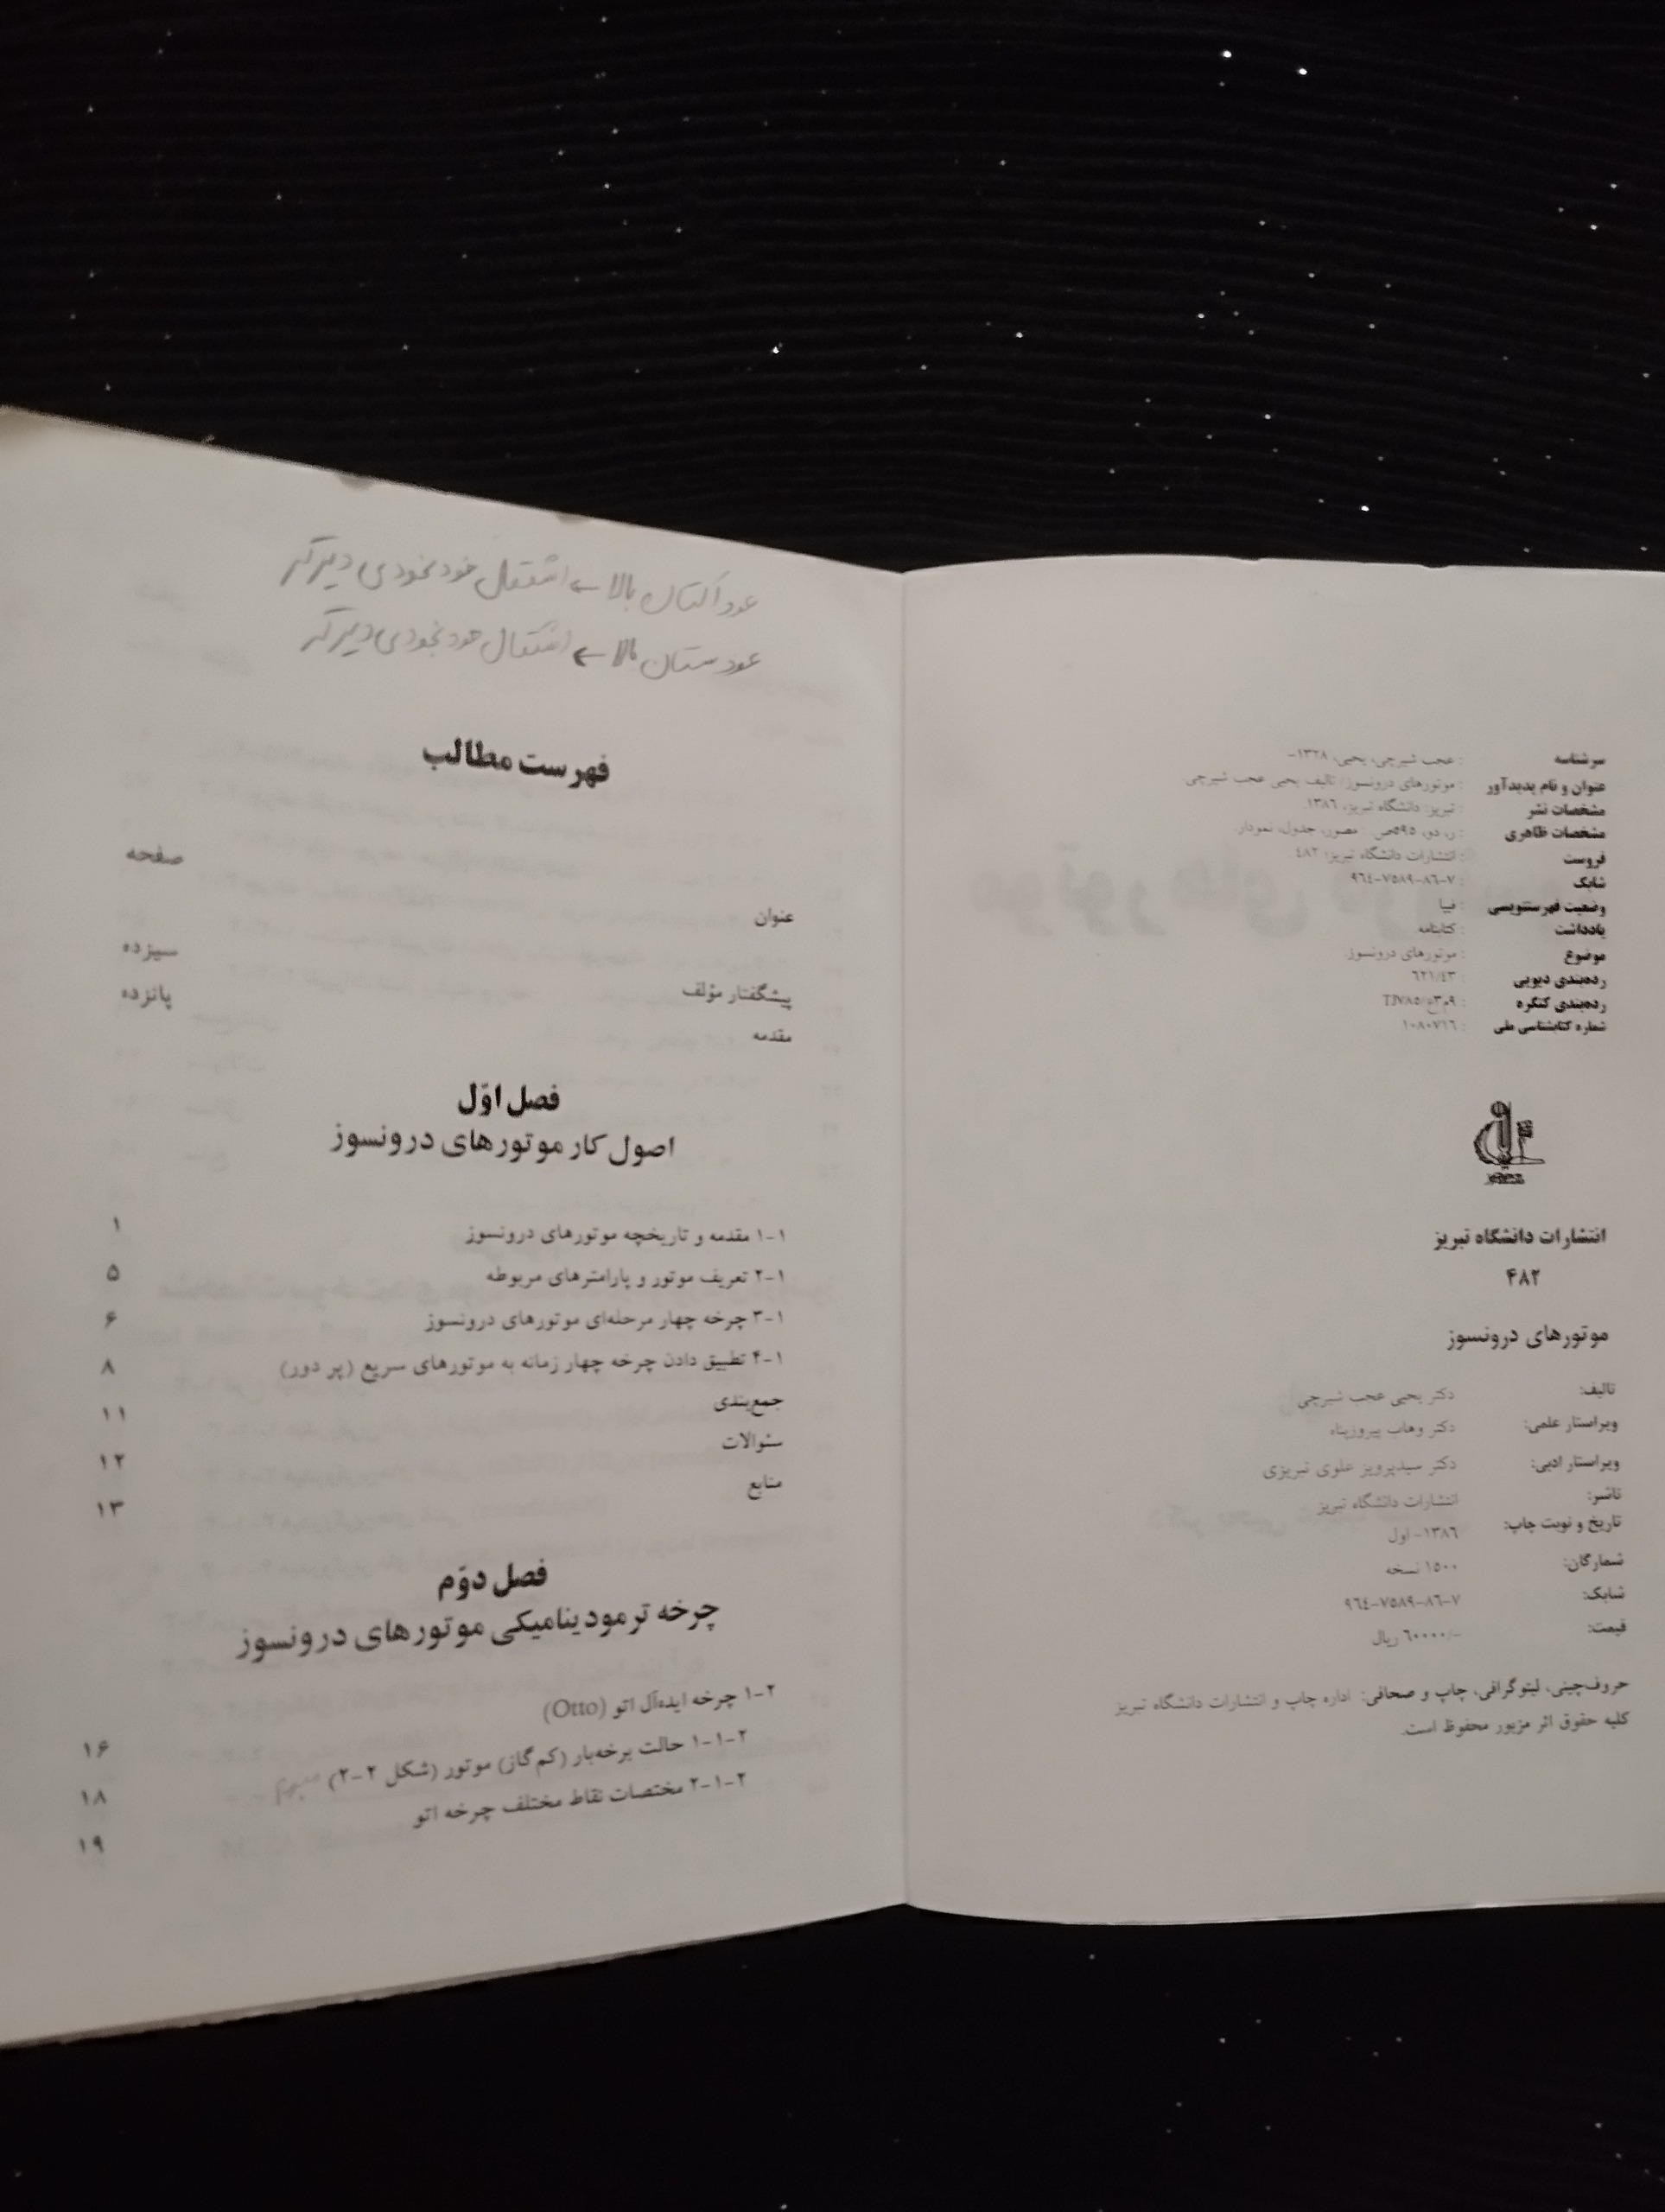 سرشناسه : عجب شیرچی، یحیی، ۱۳۲۸-
عنوان و نام پدیدآور : موتورهای درونسوز/ تالیف یحیی عجب شیرچی.
مشخصات نشر : تبریز: دانشگاه تبریز، ۱۳۸۶.
مشخصات ظاهری : ر، دو، ۵۹۵ص : مصور، جدول، نمودار.
فروست : انتشارات دانشگاه تبریز؛ ۴۸۲.
شابک : ۹۶۴-۷۵۸۹-۸۶-۷
وضعیت فهرستنویسی : فیپا
یادداشت : کتابنامه
موضوع : موتورهای درونسوز.
رده‌بندی دیویی : ۶۲۱/۴۳
رده‌بندی کنگره : TJ۷۸۵/
شماره کتابشناسی ملی : ۱۰۸۰۷۱۶
انتشارات دانشگاه تبریز
۴۸۲
موتورهای درونسوز
تالیف: دکتر یحیی عجب شیرچی
ویراستار علمی: دکتر وهاب پیروزپناه
ویراستار ادبی: دکتر سیدپرویز علوی تبریزی
ناشر: انتشارات دانشگاه تبریز
تاریخ و نوبت چاپ: ۱۳۸۶- اول
شمارگان: ۱۵۰۰ نسخه
شابک: ۹۶۴-۷۵۸۹-۸۶-۷
قیمت: ۶۰۰۰۰/- ریال
حروف‌چینی، لیتوگرافی، چاپ و صحافی: اداره چاپ و انتشارات دانشگاه تبریز
کلیه حقوق اثر مزبور محفوظ است.
عدد اکتان بالا ← اشتعال خودبخودی دیرتر
عدد ستان بالا ← اشتعال خودبخودی دیرتر
فهرست مطالب
عنوان صفحه
پیشگفتار مؤلف سیزده
مقدمه پانزده
فصل اوّل
اصول کار موتورهای درونسوز
۱-۱ مقدمه و تاریخچه موتورهای درونسوز ۱
۲-۱ تعریف موتور و پارامترهای مربوطه ۵
۳-۱ چرخه چهار مرحله‌ای موتورهای درونسوز ۶
۴-۱ تطبیق دادن چرخه چهار زمانه به موتورهای سریع (پر دور) ۸
جمع‌بندی ۱۱
سئوالات ۱۲
منابع ۱۳
فصل دوّم
چرخه ترمودینامیکی موتورهای درونسوز
۱-۲ چرخه ایده‌آل اتو (Otto) ۱۶
۱-۱-۲ حالت برخه‌بار (کم‌گاز) موتور (شکل ۲-۲) مبهم ۱۸
۲-۱-۲ مختصات نقاط مختلف چرخه اتو ۱۹